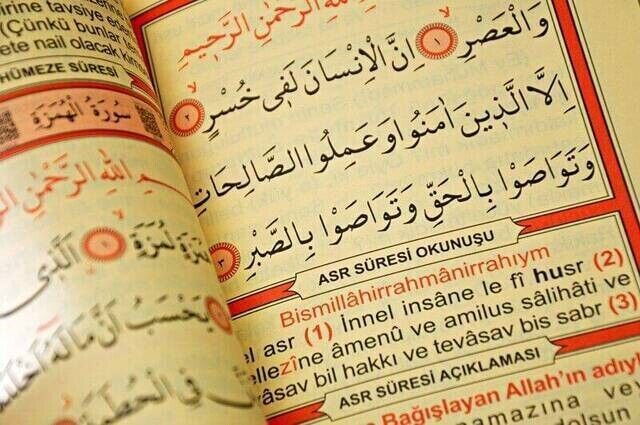 irine tavsiye eden
(Çünkü bunlar
ete nail olacak
HÜMEZE SÛRESİ
سُورَةُ الْهُمَزَةِ
اللّٰهِ الرَّحْمٰنِ الرَّحٖيمِ
لُمَزَةٍ ١ اَلَّذٖى
يَحْسَبُ اَنَّ مَالَهُٓ
فِى الْحُطَمَةِ
اللّٰهِ الرَّحْمٰنِ الرَّحٖيمِ
وَالْعَصْرِ ١ اِنَّ الْاِنْسَانَ لَفٖى خُسْرٍ ٢
اِلَّا الَّذٖينَ اٰمَنُوا وَعَمِلُوا الصَّالِحَاتِ
وَتَوَاصَوْا بِالْحَقِّ وَتَوَاصَوْا بِالصَّبْرِ ٣
ASR SÛRESİ OKUNUŞU
Bismillâhirrahmânirrahıym
el asr (1) İnnel insâne le fî husr (2)
ellezîne âmenû ve amilus sâlihâti ve
vâsav bil hakkı ve tevâsav bis sabr (3)
ASR SÛRESİ AÇIKLAMASI
Bağışlayan Allah'ın adıyl
namazına ve
dolsun